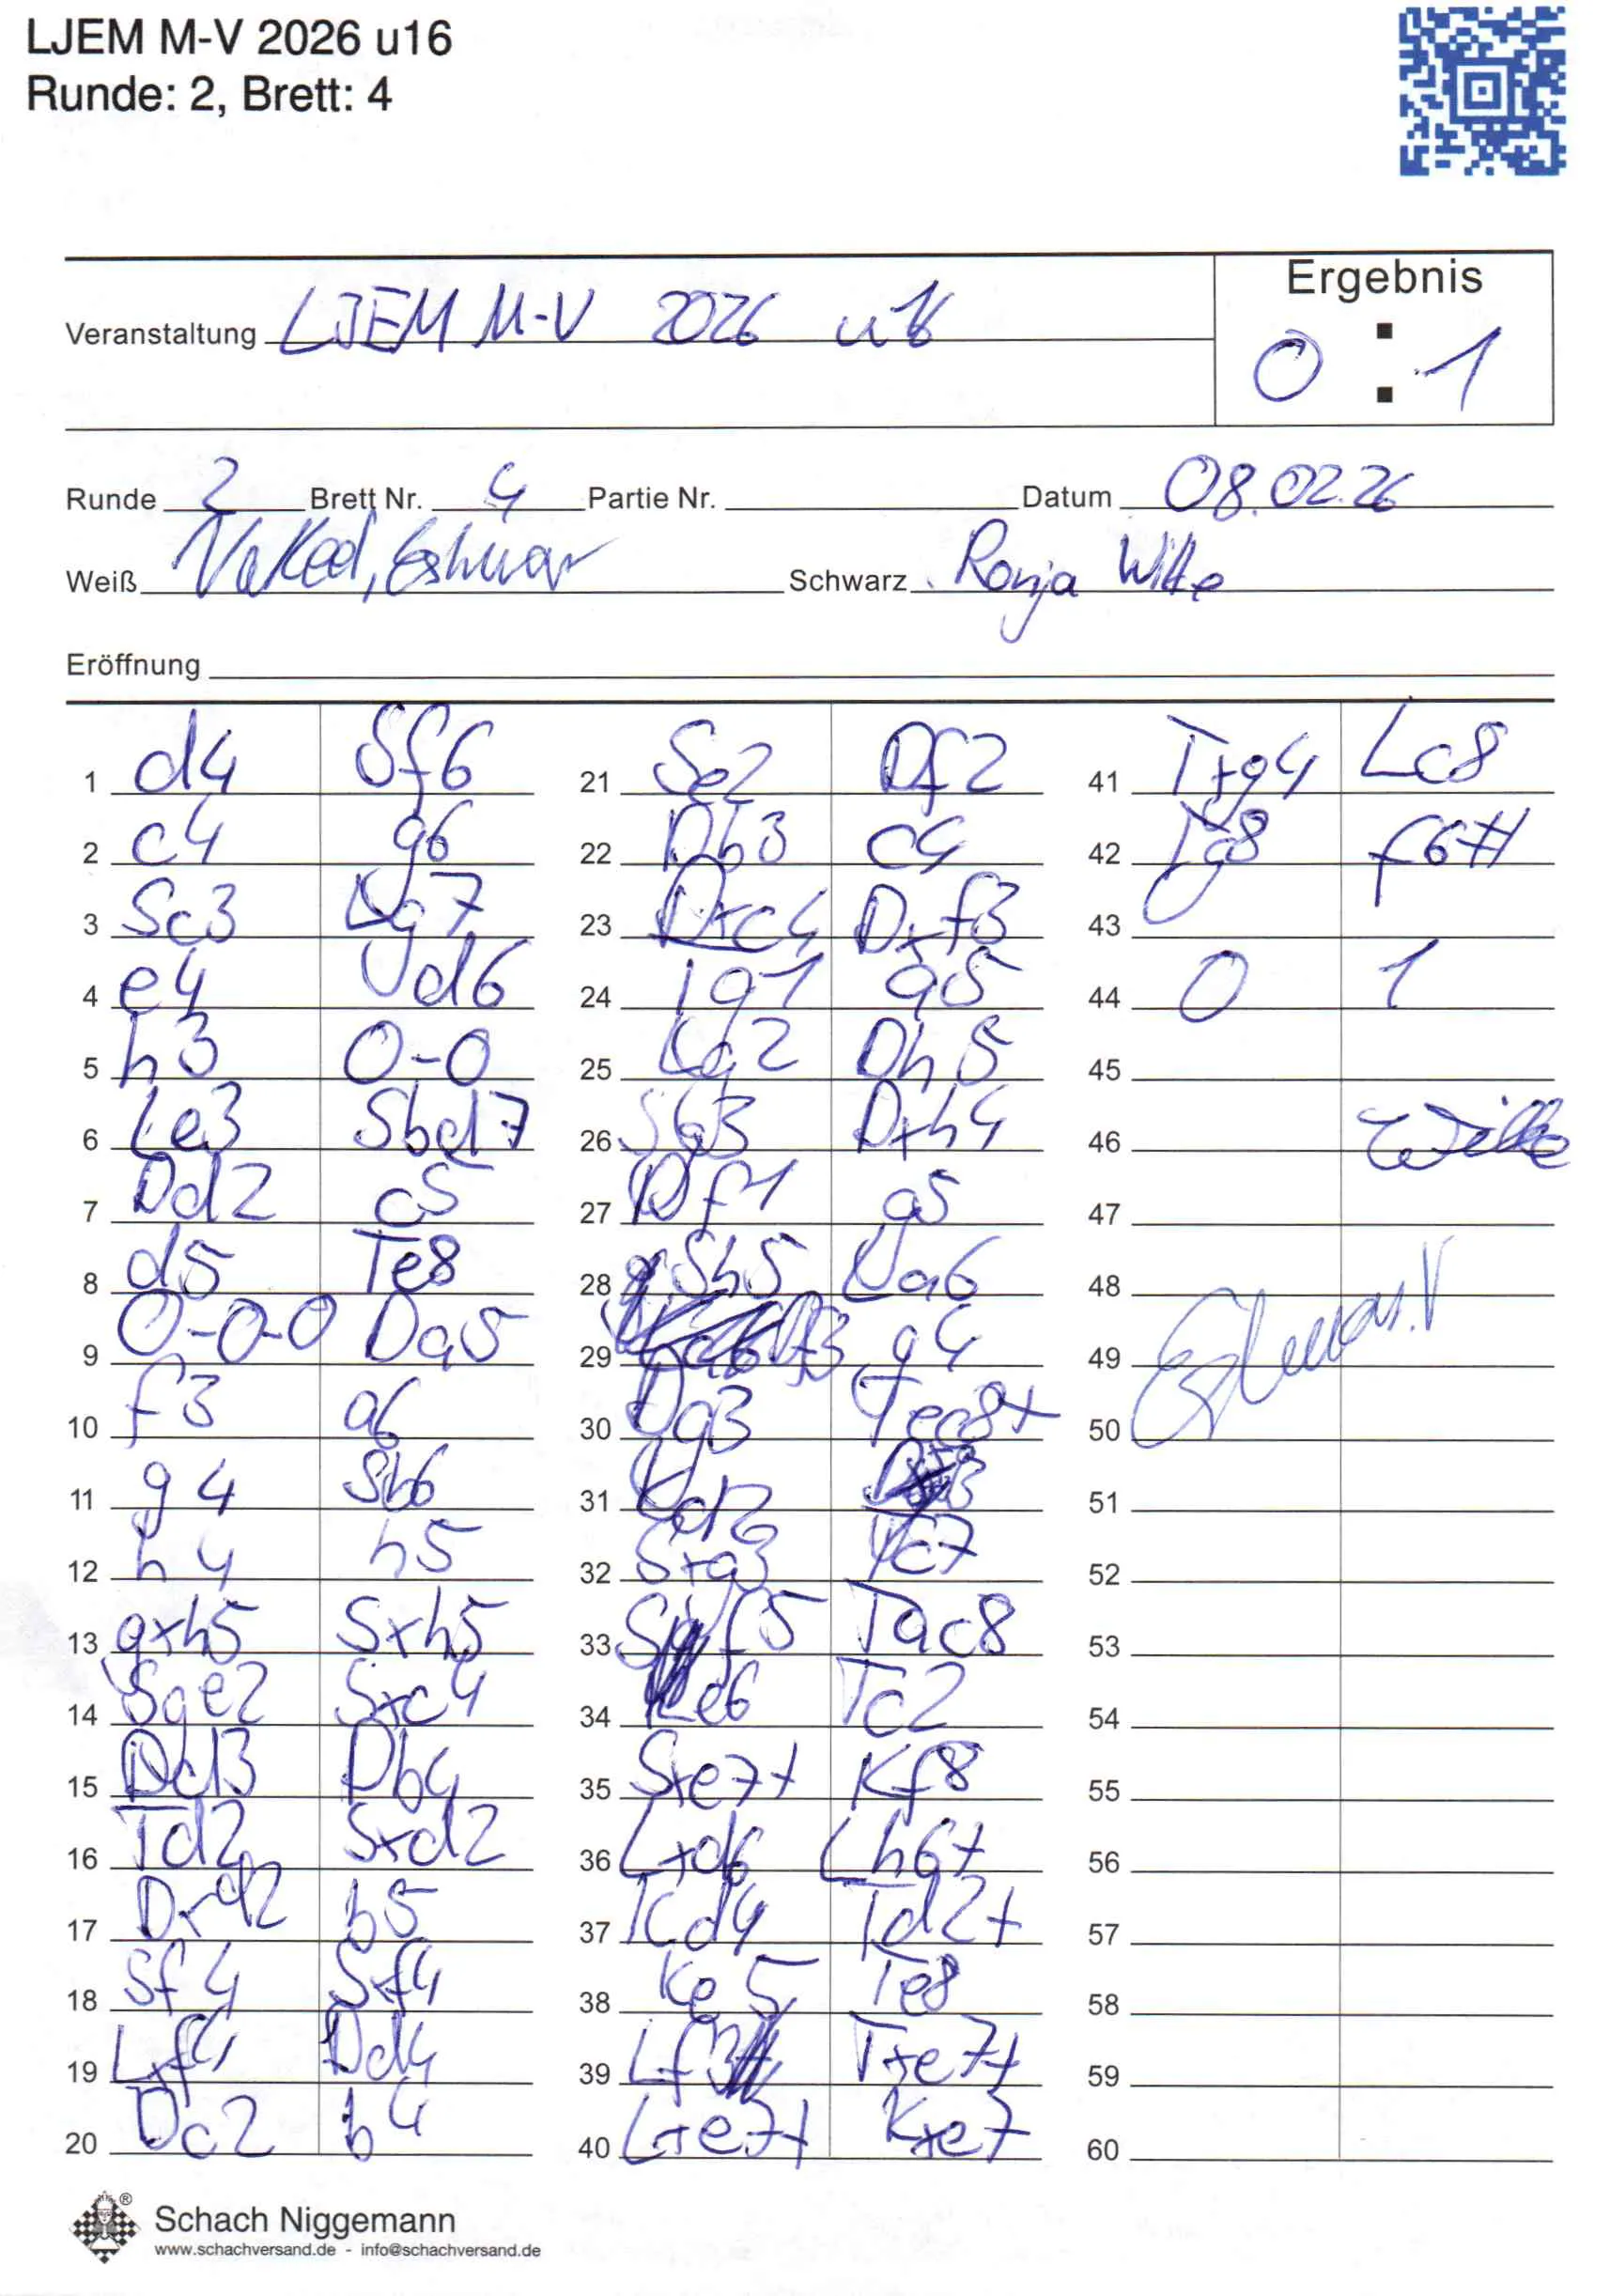 LJEM M-V 2026 u16
Runde: 2, Brett: 4
Ergebnis
Veranstaltung LJEM M-V 2026 u16
0 : 1
Runde 2 Brett Nr. 4 Partie Nr. Datum 08.02.26
Weiß Schwarz Ronja Witte
Eröffnung
1 d4 Sf6
2 c4 g6
3 Sc3 Lg7
4 e4 d6
5 h3 0-0
6 Le3 Sbd7
7 Dd2 c5
8 d5 Te8
9 0-0-0 Da5
10 f3 a6
11 g4 Sb6
12 h4 h5
13 gxh5 Sxh5
14 Sge2 Sxc4
15 Dd3 Db4
16 Td2 Sxd2
17 Dxd2 b5
18 Sf4 Sxf4
19 Lxf4 Dd4
20 Dc2 b4
21 Se2 Df2
22 Db3 c4
23 Dxc4 Dxf3
24 Tg1 a5
25 Lg2 Dh5
26 Sg3 Dxh4
27 Df1 g5
28 Sh5 La6
29 f3 g4
30 Dg3 Tec8+
31 Kd2
32 Sxg3 Tc7
33 Sf5 Tac8
34 Le6 Tc2
35 Sxe7+ Kf8
36 Lxd6 Lh6+
37 Kd4 Td2+
38 Ke5 Te8
39 Lf3 Txe7+
40 Lxe7+ Kxe7
41 Txg4 Lc8
42 Tg8 f6#
43
44 0 1
45
46 Witte
47
48
49
50
51
52
53
54
55
56
57
58
59
60
Schach Niggemann
www.schachversand.de - info@schachversand.de